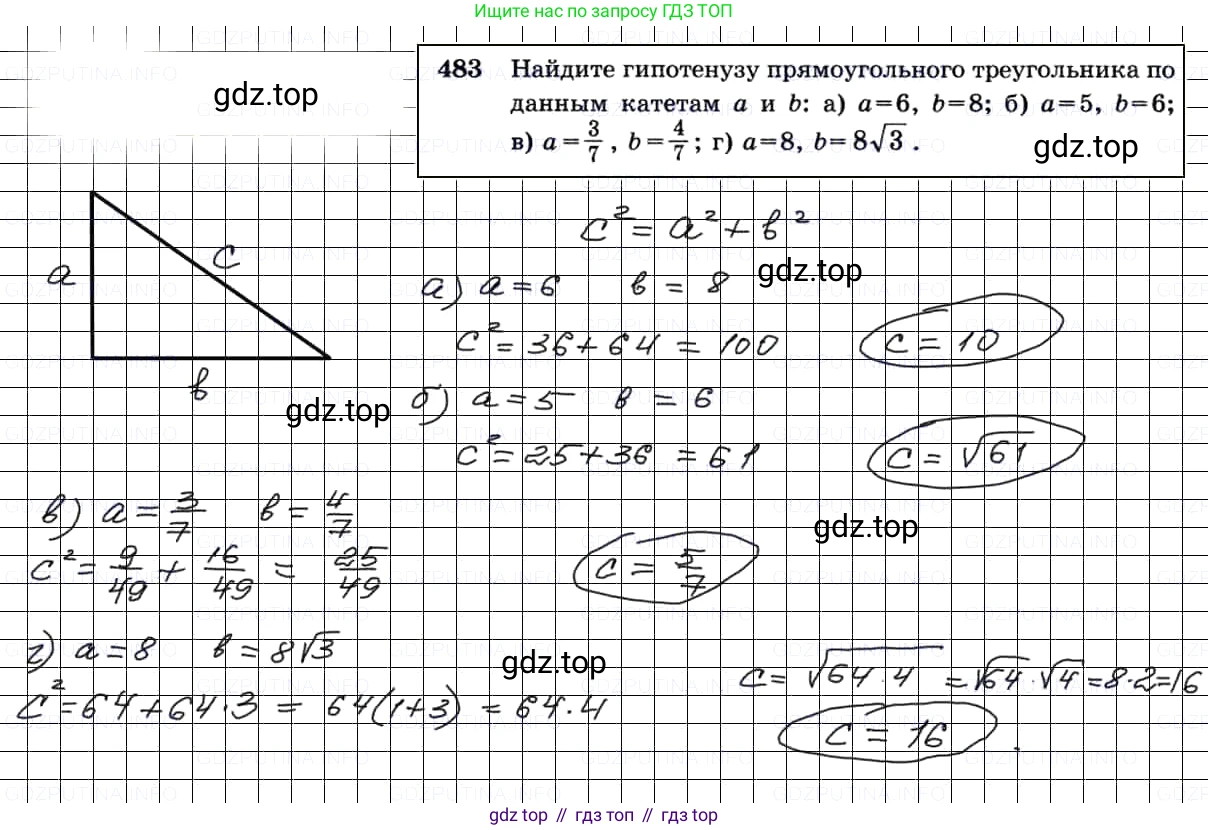 Ищите нас по запросу ГДЗ ТОП
483 Найдите гипотенузу прямоугольного треугольника по
данным катетам a и b: а) a=6, b=8; б) a=5, b=6;
в) a=3/7, b=4/7; г) a=8, b=8√3.
gdz.top
gdz.top
c² = a² + b²
a
c
b
gdz.top
а) a = 6 b = 8
gdz.top
c² = 36 + 64 = 100
c = 10
б) a = 5 b = 6
c² = 25 + 36 = 61
c = √61
в) a = 3/7 b = 4/7
gdz.top
c² = 9/49 + 16/49 = 25/49
c = 5/7
г) a = 8 b = 8√3
gdz.top
c² = 64 + 64·3 = 64(1+3) = 64·4
c = √64·4 = √64·√4 = 8·2 = 16
c = 16
gdz top // гдз топ // гдз top
GDZPUTINA.INFO